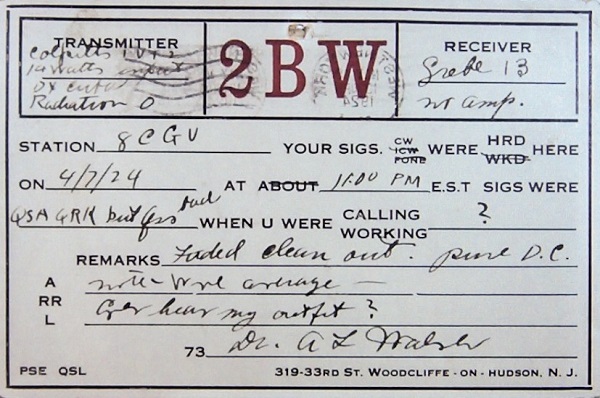 TRANSMITTER
Colpitts 1 VT2
10 watts input
Radiation 0
2BW
RECEIVER
Grebe 13
no amp.
STATION 8CGU YOUR SIGS. CW ICW FONE WERE HRD WKD HERE
ON 4/7/24 AT ABOUT 11:00 PM E.S.T SIGS WERE
QSA QRK but QSS bad WHEN U WERE CALLING WORKING ?
REMARKS Faded clean out. pure D.C.
ARRL
note - average —
Ever hear my outfit?
73 Dr. A L Walsh
PSE QSL
319-33RD ST. WOODCLIFFE - ON - HUDSON, N. J.